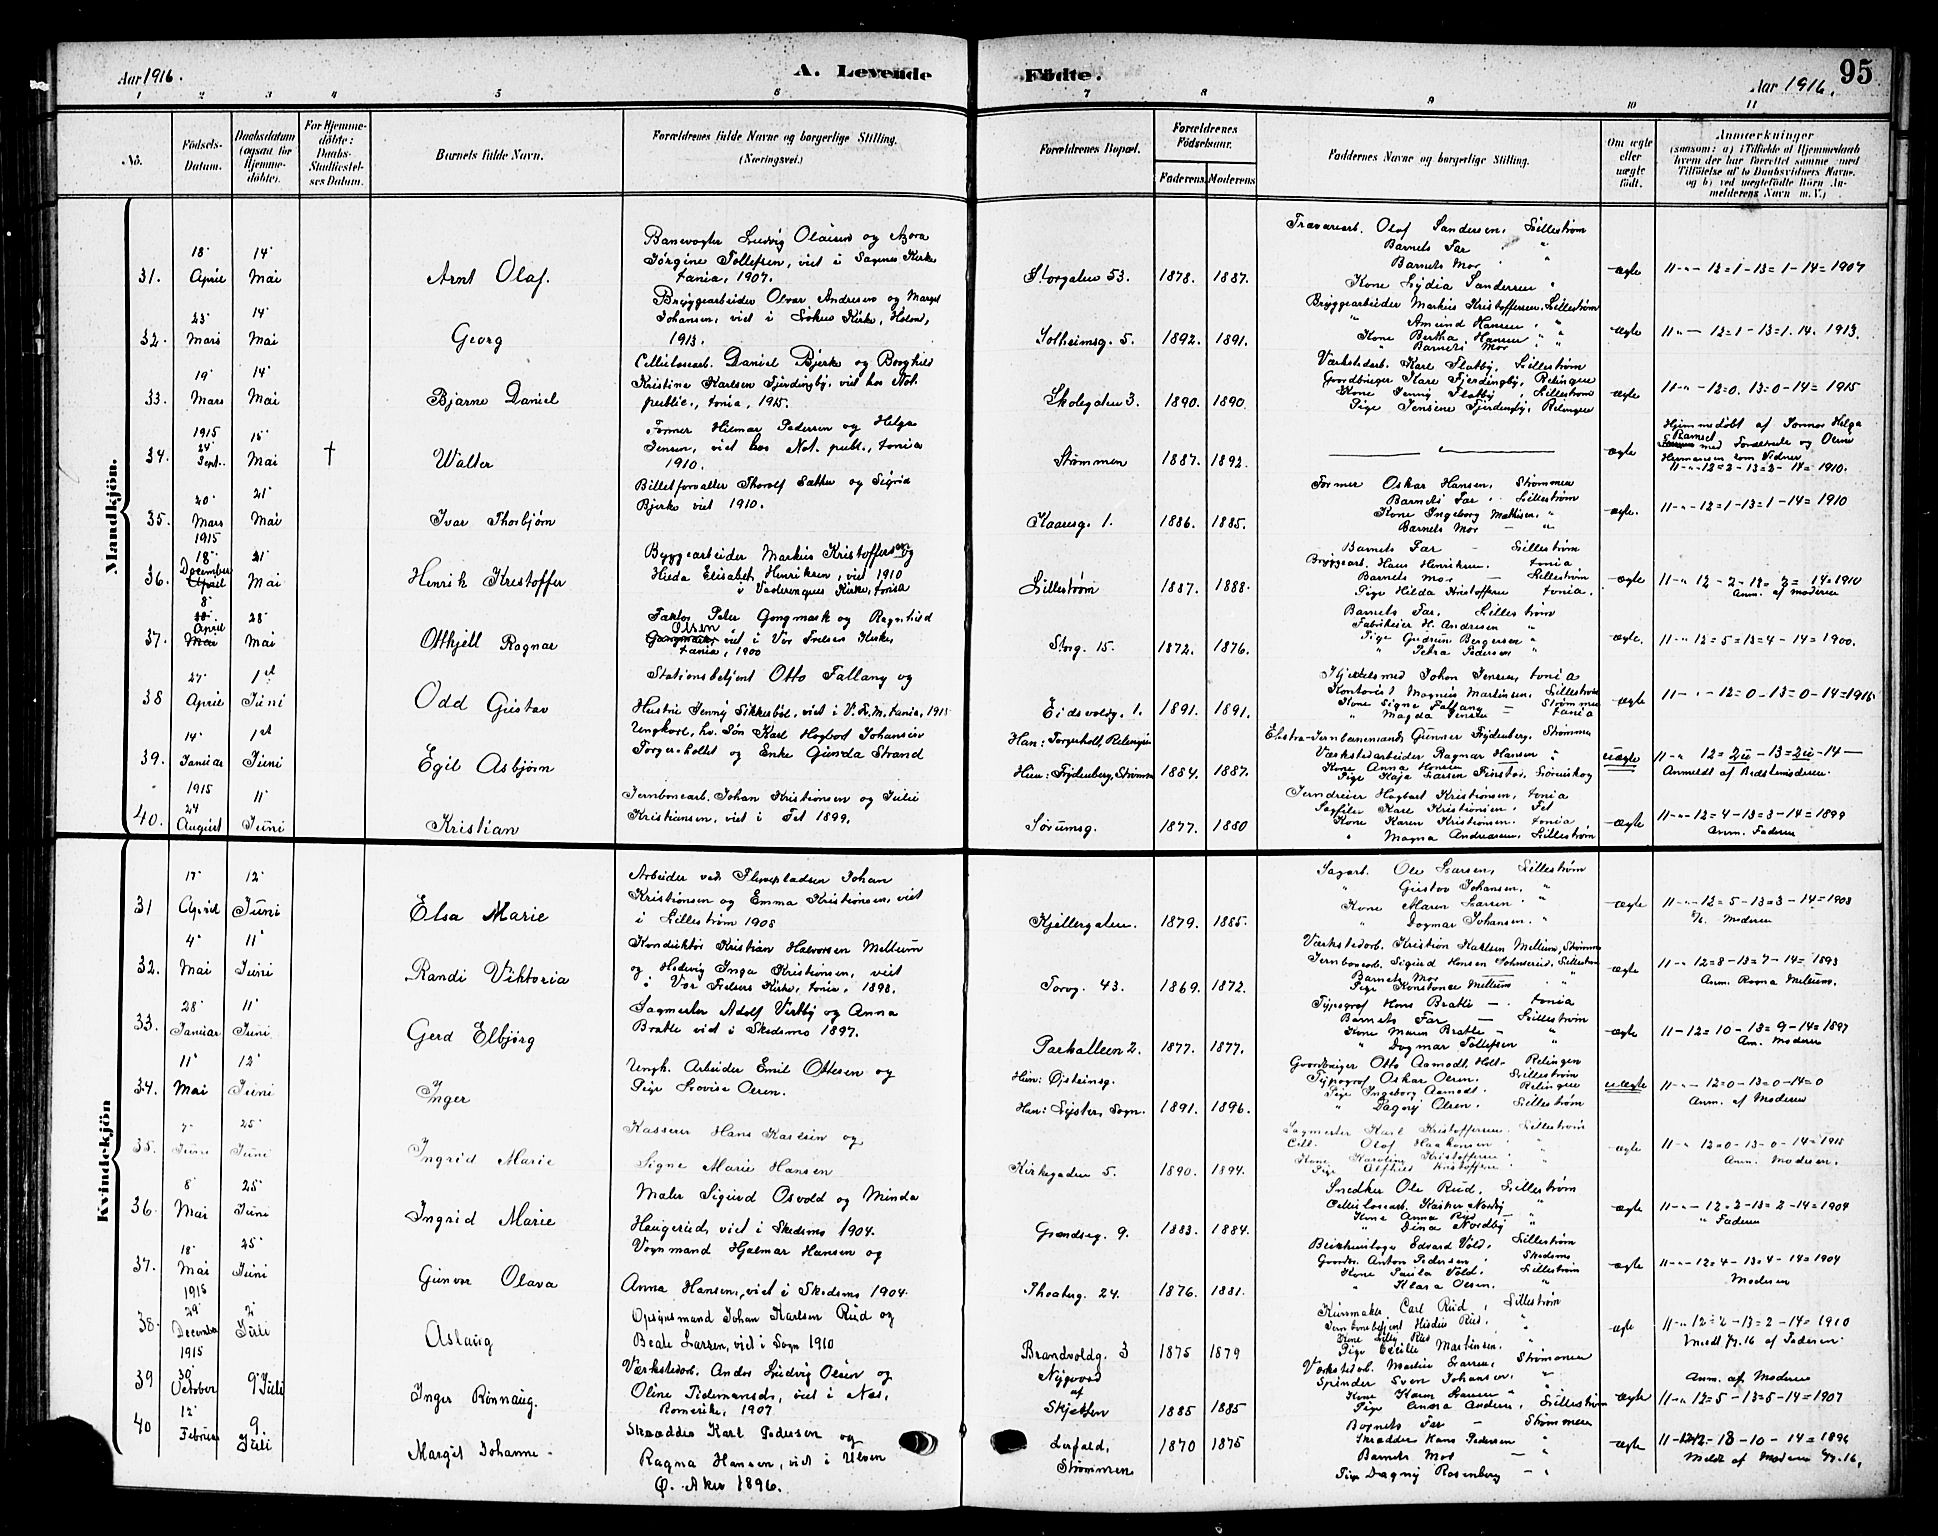 Aar 1916.
A. Levende
Fødte.
Aar 1916.
95
1 2 3 4 5 6 7 8 9 10 11
No.
Fødsels-Datum.
Daabsdatum (ogsaa for Hjemmedøbte).
For Hjemmedøbte: Daabs-Stadfæstelses Datum.
Barnets fulde Navn.
Forældrenes fulde Navne og borgerlige Stilling. (Næringsvei.)
Forældrenes Bopæl.
Forældrenes Fødselsaar.
Faderens. Moderens
Faddernes Navne og borgerlige Stilling.
Om ægte eller uægte født.
Anmærkninger
(saasom: a) i Tilfælde af Hjemmedaab
hvem der har forrettet samme med
Tilføielse af to Daabsvidners Navne.
og b) ved uægtefødte Børn An-
melderens Navn m. V.)
Mandkjön.
31. 18 April 14 Mai Arnt Olaf.
Jørgine Tollefsen, viet i Sagenes Kirke
tania, 1907.
Storgaten 53. 1878. 1887.
Olaf Sandersen, Lillestrøm
Barnets Far "
Barnets Mor "
Kone Lydia Sandersen "
ægte 11-"-12=1-13=1-14=1907
32. 23 Mars 14 Mai Georg
Bryggearbeider Olvar Andresen og Margit
Johansen, viet i Kirke,
1913.
Solheimsg. 5. 1892. 1891.
Bryggearbeider Markus Kristoffersen, Lillestrøm
" Amund Hansen, "
Kone Bertha Hansen "
Barnets Mor "
ægte 11-"-12=1-13=1.14.1913.
33. 19 Mars 14 Mai Bjarne Daniel
Cellulosearb. Daniel Bjerke og Borghild
Kristine Karlsen Fjerdingby, viet hos Not.
public., tonia, 1915.
Skolegaten 3. 1890. 1890.
Værkstedarb. Karl Flatby, Lillestrøm
Gaardbruger Kare Fjerdingby, Relingen
Kone Jenny Flatby, Lillestrøm
Pige Jensine Fjerdingby, Relingen
ægte 11-"-12=0.13=0-14=1915
34. 1915 24 Sept. 15 Mai † Walter
Former Hilmar Pedersen og Helga
Jensen, viet hos Not. publ., tonia
1910.
Strømmen 1887. 1892.
ægte
Hjemmedøbt af Jonnor Helga
Ramset
Hermansen som Vidner
11-"-12=2-13=2-14=1910.
35. 20 Mars 21 Mai Ivar Thorbjørn
Billetforvalter Thorolf Sætter og Sigrid
Bjerke viet 1910.
Kaaresg. 1. 1886. 1885.
Former Oskar Hansen, Strømmen
Barnets Far, Lillestrøm
Kone Ingeborg Mathisen, "
Barnets Mor — "
ægte. 11-"-12=1-13=1-14=1910
36. 1915 18 December 21 Mai Henrik Kristoffer
Byggearbeider Markus Kristoffersen og
Hilda Elisabet Henriksen, viet 1910
i Vaalerengens Kirke, tonia
Lillestrøm 1887. 1888.
Barnets Far - Lillestrøm
Bryggearb. Hans Henriksen, tonia,
Barnets Mor — Lillestrøm
Pige Hilda Kristoffersen tonia.
ægte 11-"-12-2-13=2=14=1910
Anm. af moderen
37. 8 April 28 Mai Otthjell Ragnar
Faktor Peter Gongmark og Ragnhild
Olsen
viet i Vor Frelsers Kirke,
tania, 1900
Storg. 15. 1872. 1876.
Barnets Far, Lillestrøm
Fabrikeier H. Andresen "
Pige Gudrun Bergersen "
" Petra Pedersen "
ægte. 11-"-12=5=13=4-14=1900.
38 27 April 1st Juni Odd Gustav
Stationsbetjent Otto Fallang og
Hustru Jenny Sikkebøl, viet i V.F.M. tania, 1915
Eidsvoldg. 1. 1891. 1891.
Johan Jensen, tonia
Kontorist Magnus Martinsen, Lillestrøm
Kone Signe Fallang - Strømmen
" Magda Jensen — tania
ægte 11-"-12=0-13=0-14=1915
39. 14 Januar 1st Juni Egil Asbjørn
Ungkarl, hv. Søn Karl Hogbod Johansen
Torgerholtet og Enke Gunda Strand
Han: Torgerholt, Relingen
Hun: Frydenberg, Strømm 1884. 1887.
Ekstra-Jernbanemand Gunnar Frydenberg, Strømmen
Værkstedarbeider Ragnar Hansen "
Kone Anna Hansen "
Pige Kaja Larsen Finstad, Lørenskog
uægte 11-"-12=2u-13=2u-14—
Anmeldt af Bedstemoderen.
40. 1915 24 August 11 Juni Kristian
Jernbanearb. Johan Kristiansen og Julie
Kristiansen, viet i Fet 1899.
Sørumsg. 1877. 1880
Jerndreier Hogbart Kristiansen, tonia
Sagfiler Karl Kristiansen, Fet
Kone Karen Kristiansen. tonia
" Magna Andreassen, Lillestrøm
ægte 11-"-12=4-13=3-14=1899
Anm. Faderen
Kvindekjön
31 17 April 12 Juni Elsa Marie
Arbeider ved Johan
Kristiansen og Emma Kristiansen, viet
i Lillestrøm 1908
Kjellergaten. 1879. 1885.
Sagarb. Ole Larsen, Lillestrøm
" Gustav Johansen, "
Kone Maren Larsen "
" Dagmar Johansen. "
ægte 11-"-12=5-13=3-14=1908
Moderen
32. 4 Mai 11 Juni Randi Viktoria
Konduktør Kristian Halvorsen Mellum
og Hedvig Inga Kristiansen, viet
i Vor Frelsers Kirke, tonia, 1898.
Torvg. 43. 1869. 1872.
Værkstedarb. Kristian Karlsen Mellum, Strømmen
Barnets Mor
Pige Konstance Mellum "
ægte 11-"-12=8-13=7-14=1893
Anm. Ragna Mellum.
33. 28 Januar 11 Juni Gerd Elbjørg
Sagmester Adolf Vestby og Anna
Bratle viet i Skedsmo 1897.
Parkalleen 2. 1877. 1877.
Typograf Hans Bratli — tonia
Barnets Far — Lillestrøm
Kone Maren Bratle "
" Dagmar Tollefsen "
ægte 11-12=10-13=9-14=1897
An. Moderen
34. 11 Mai 12 Juni Inger
Ungk. Arbeider Emil Ottesen og
Pige Lovise Olsen.
Hun: Øisteinsg.
Han: Lyster, Sogn. 1891. 1896.
Gaardbruger Otto Aamodt, Holt- Relingen
Typograf Oskar Olsen, Lillestrøm
Pige Ingeborg Aamodt. Relingen
" Dagny Olsen. Lillestrøm
uægte 11-"-12=0-13=0-14=0
Anm. af Moderen
35. 7 Juni 25 Juni Ingrid Marie
Kasserer Hans Karlsen og
Signe Marie Hansen
Kirkegaden 5. 1890. 1894.
Sagmester Karl Kristoffersen, Lillestrøm
Cell. Olaf Haakonsen "
Kone Karoline Kristoffersen "
Pige Kristoffersen "
ægte 11-"-12=0-13-0-14=1915
Anm. Moderen.
36. 8 Mai 25 Juni Ingrid Marie
Maler Sigurd Osvold og Minda
Haugerud, viet i Skedsmo 1904.
Grændseg. 9. 1883. 1884.
Snedker Ole Rud, Lillestrøm
Cellulosearb. Kasper Nordby
Kone Anna Rud "
" Dina Nordby "
ægte 11-"-12=2-13=2-14=1904
" Faderen
37. 18 Mai 25 Juni Gunvor Olava
Vognmand Hjalmar Hansen og
Anna Hansen, viet i Skedsmo 1904.
Theaterg. 24. 1876. 1881.
Edvard Vold, Lillestrøm
Gaardbr. Anton Pedersen, Skedsmo
Kone Paula Vold, Lillestrøm
" Klara Olsen. "
ægte 11-"-12=4-13=4-14=1904
Moderen
38. 1915 29 December 2 Juli Aslaug
Opsynsmand Johan Karlsen Rud og
Beate Larsen, viet i Sogn 1910
Brandvoldg. 3 1875 1879
Kurvmaker Carl Rud, Lillestrøm
Jernbanebetjent Rud, "
Kone Lilly Rud "
Pige Cecilie Martinsen. "
ægte 11-"-12=2-13=2-14=1910
Meldt 16 af Faderen
39 1915 30 October 9 Juli Inger Rønnaug.
Værkstedarb. Anders Ludvig Olsen og
Oline Tidemansd, viet i Nes,
Romerike, 1907
Nygaard
af
Skjetten 1885 1885
Værkstedarb. Martin Larsen, Strømmen
Spinder Sven Johansen, "
Kone Karen Larsen "
Pige Anna Andersen, Lillestrøm
ægte Anm. af Moderen
11-"-12=5-13=5-14=1907
40 12 Februar 9 Juli Margit Johanne
Skrædder Karl Pedersen og
Ragna Hansen, viet i Ulven
Ø. Aker 1896.
Lerfald,
Strømmen 1870 1875
Barnets Far - Strømmen
Skrædder Hans Pedersen "
Barnets Mor — "
Pige Dagny Rosenberg — "
ægte 11-12-13-10-14=1896
Meldt af Moderen 16.